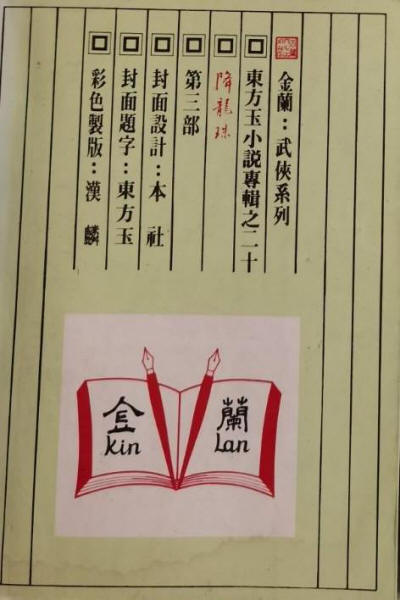 金蘭：武俠系列
東方玉小説專輯之二十
降龍珠
第三部
封面設計：本社
封面題字：東方玉
彩色製版：漢麟
金蘭
Kin Lan